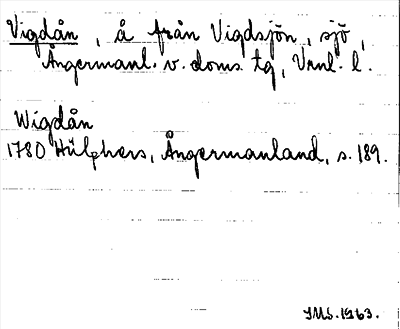 Vigdån, å från Vigdsjön, sjö,
Ångermanl. v. doms. tg, Vrnl. l.
Wigdån
1780 Hülphers, Ångermanland, s. 189.
IMS. 1963.